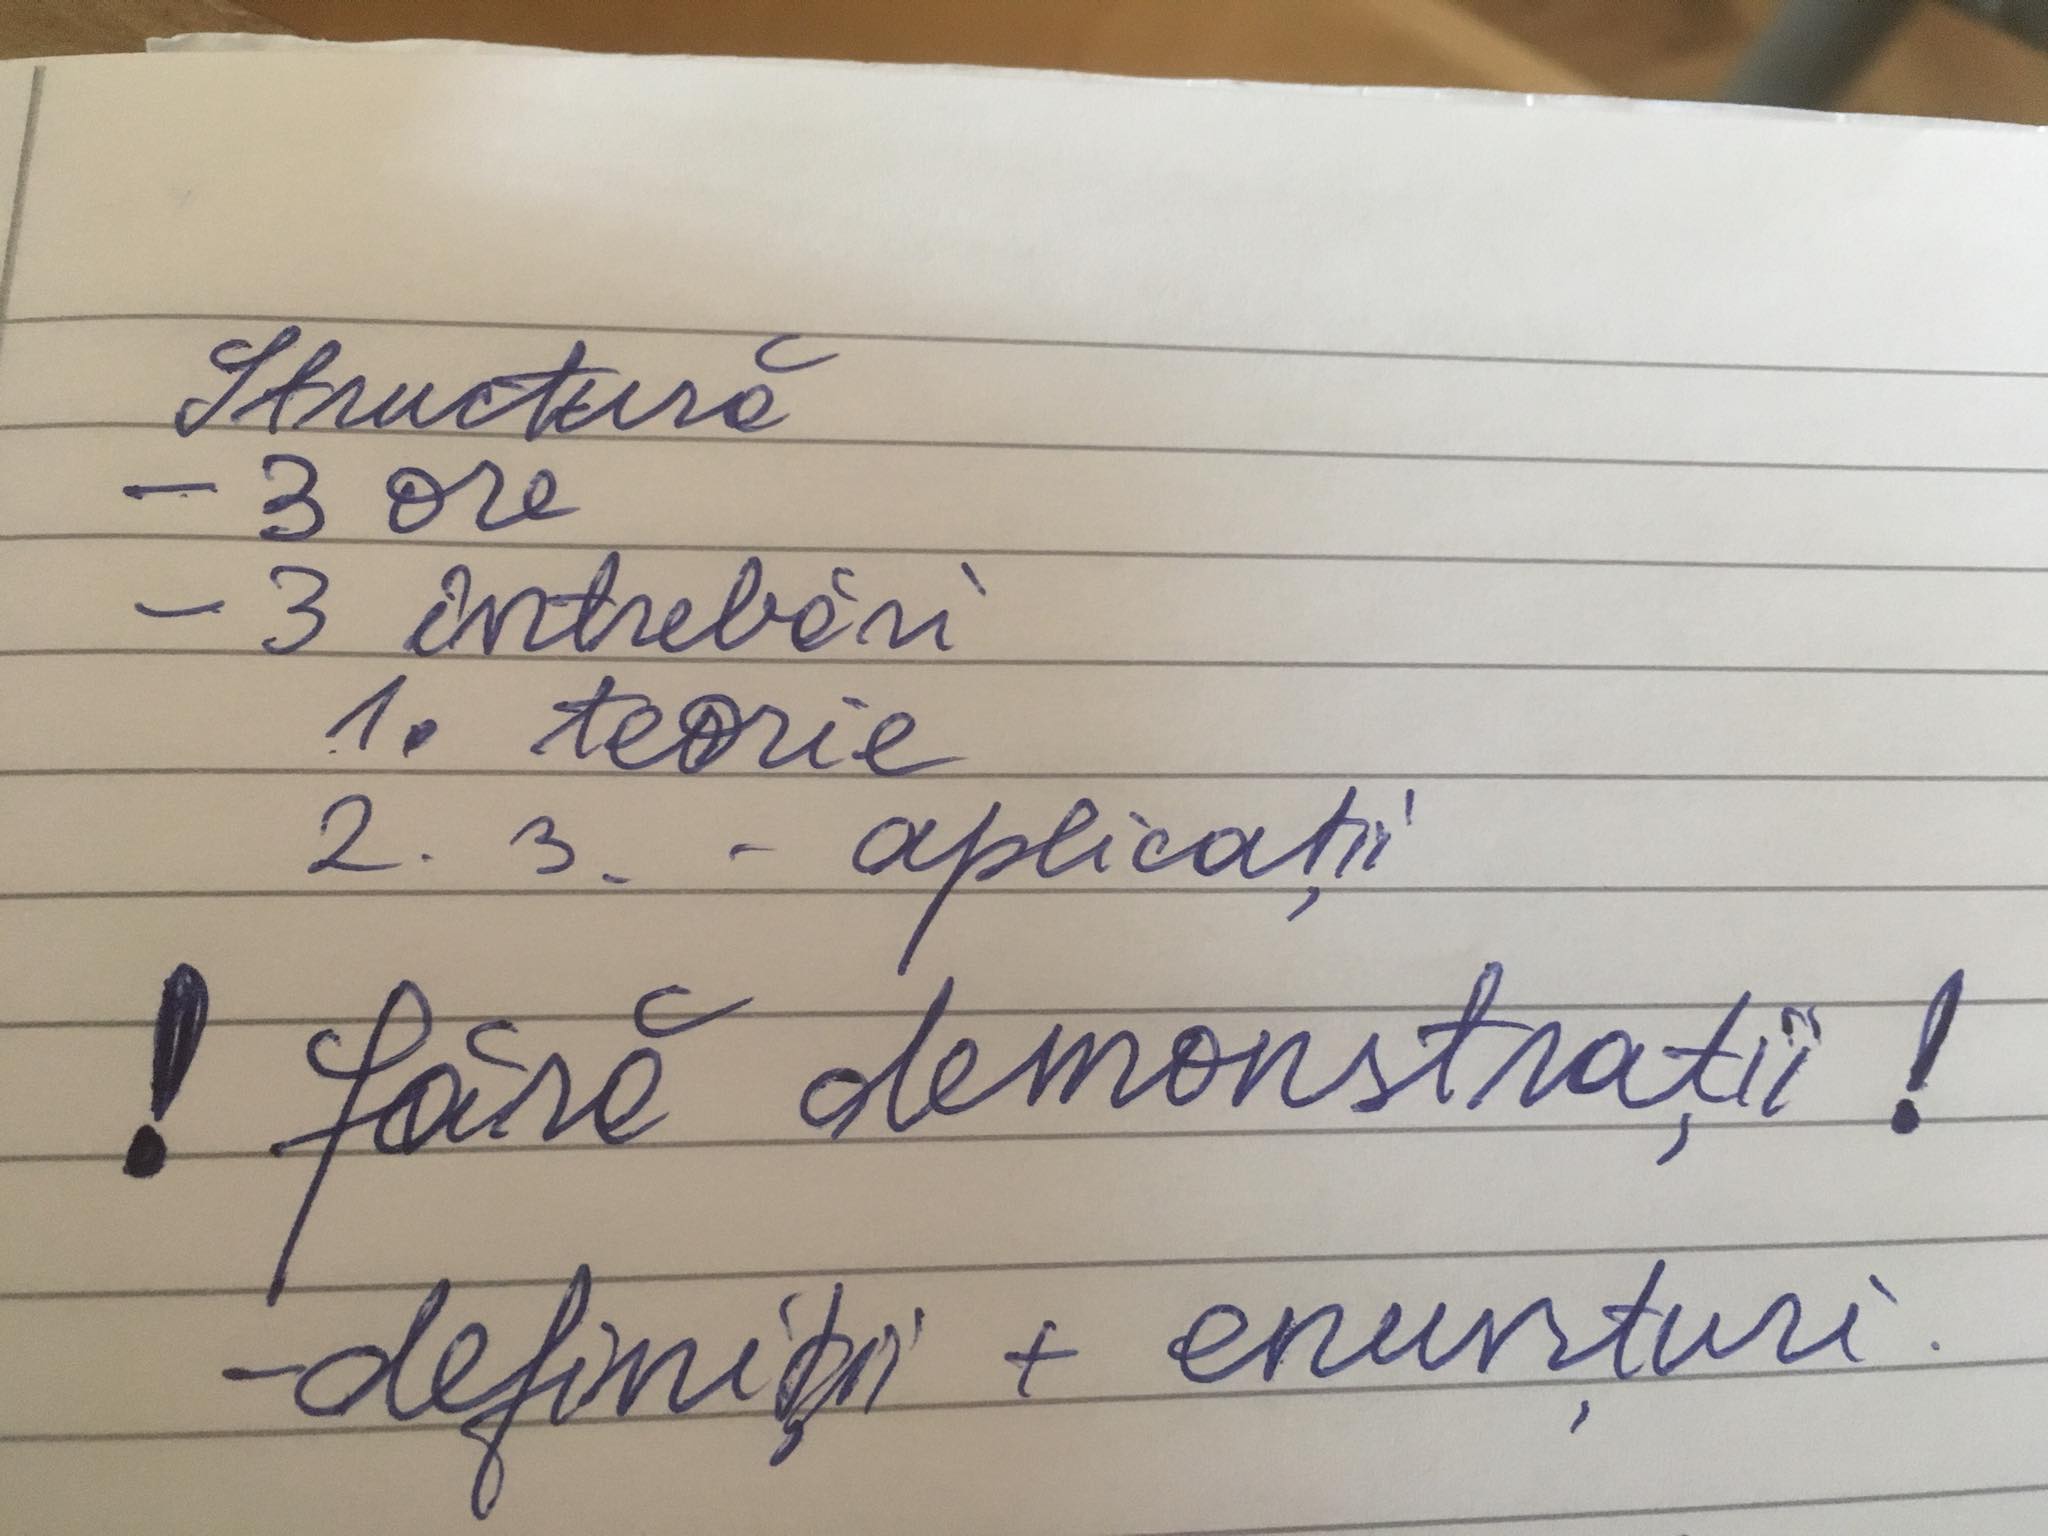 Structură
- 3 ore
- 3 întrebări
1. teorie
2. 3. - aplicații
! fără demonstrații !
- definiții + enunțuri.